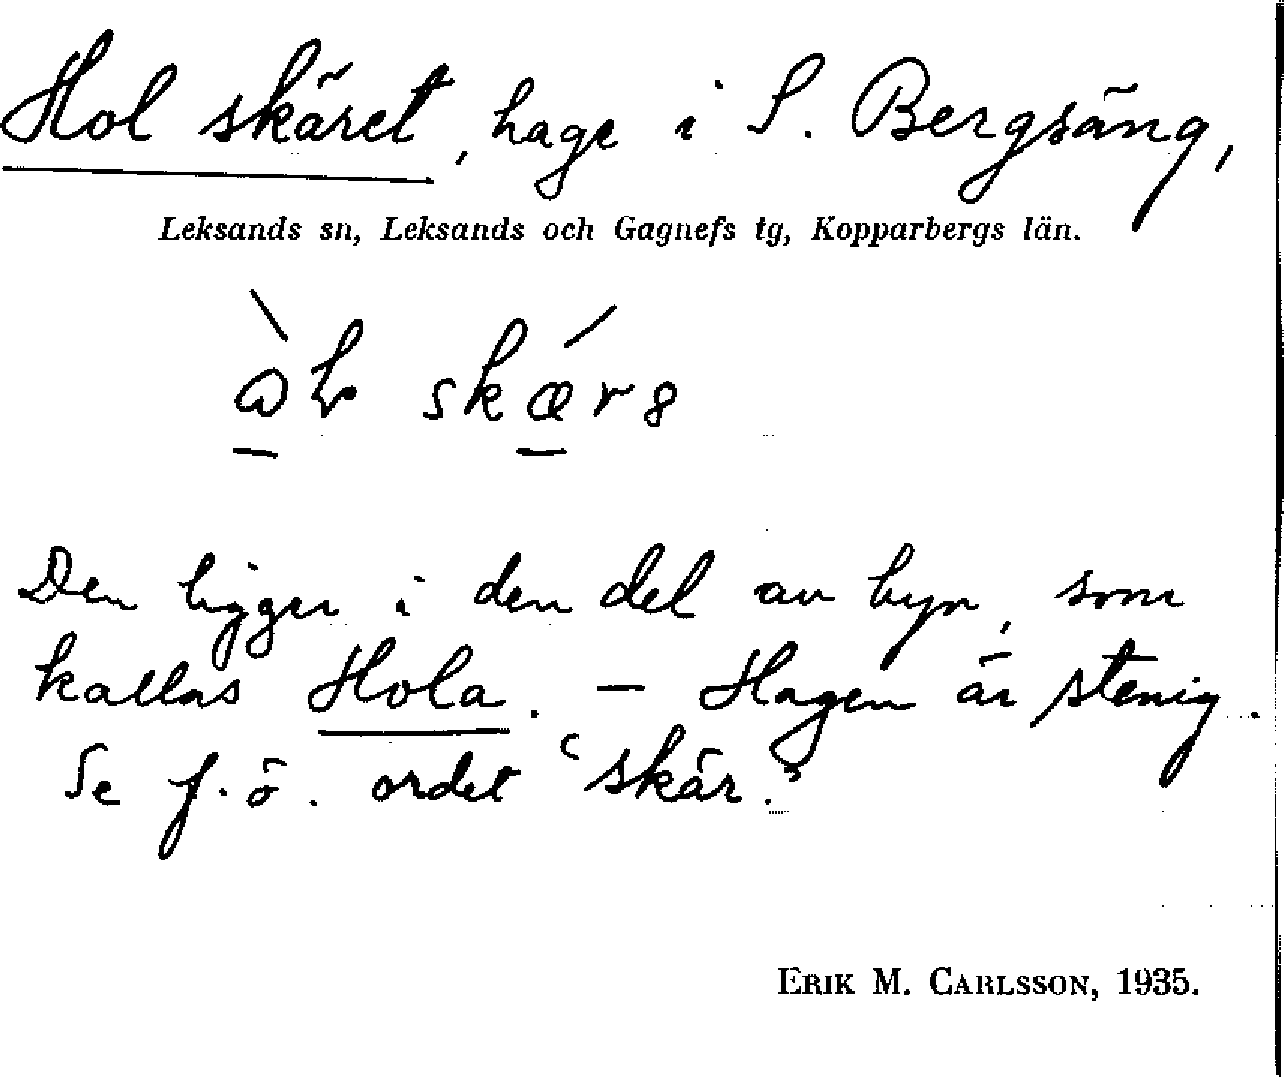 Hol skäret, hage i S. Bergsäng,
Leksands sn, Leksands och Gagnefs tg, Kopparbergs län.
Den ligger i den del av byn, som
kallas Hola. — Hagen är stenig.
Se f.ö. ordet "skär."
ERIK M. CARLSSON, 1935.